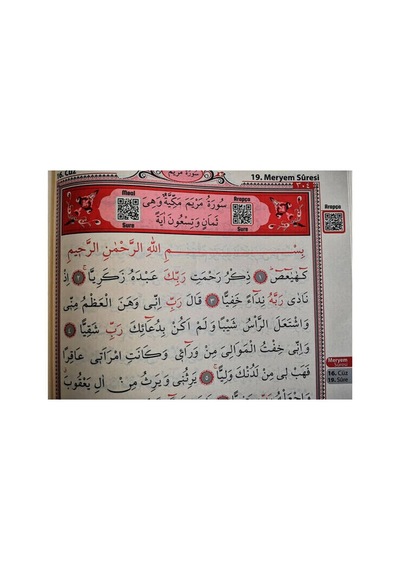 6. Cüz
سورة مريم
19. Meryem Sûresi
٣٠٤
Meal
Sure
سُورَةُ مَرْيَمَ مَكِّيَّةٌ وَهِيَ
ثَمَانٍ وَتِسْعُونَ اٰيَةً
Arapça
Sure
Arapça
بِسْــــمِ اللّٰهِ الرَّحْمٰنِ الرَّحِيمِ
كٓهٰيٰعٓصٓ ١ ذِكْرُ رَحْمَتِ رَبِّكَ عَبْدَهُ زَكَرِيَّا ٢ اِذْ
نَادٰى رَبَّهُ نِدَٓاءً خَفِيًّا ٣ قَالَ رَبِّ اِنّٖى وَهَنَ الْعَظْمُ مِنّٖى
وَاشْتَعَلَ الرَّأْسُ شَيْبًا وَلَمْ اَكُنْ بِدُعَٓائِكَ رَبِّ شَقِيًّا ٤
وَاِنّٖى خِفْتُ الْمَوَالِىَ مِنْ وَرَٓائٖى وَكَانَتِ امْرَاَتٖى عَاقِرًا
فَهَبْ لٖى مِنْ لَدُنْكَ وَلِيًّا ٥ يَرِثُنٖى وَيَرِثُ مِنْ اٰلِ يَعْقُوبَ
وَاجْعَلْهُ رَبِّ
Meryem
Sûresi
16. Cüz
19. Sûre